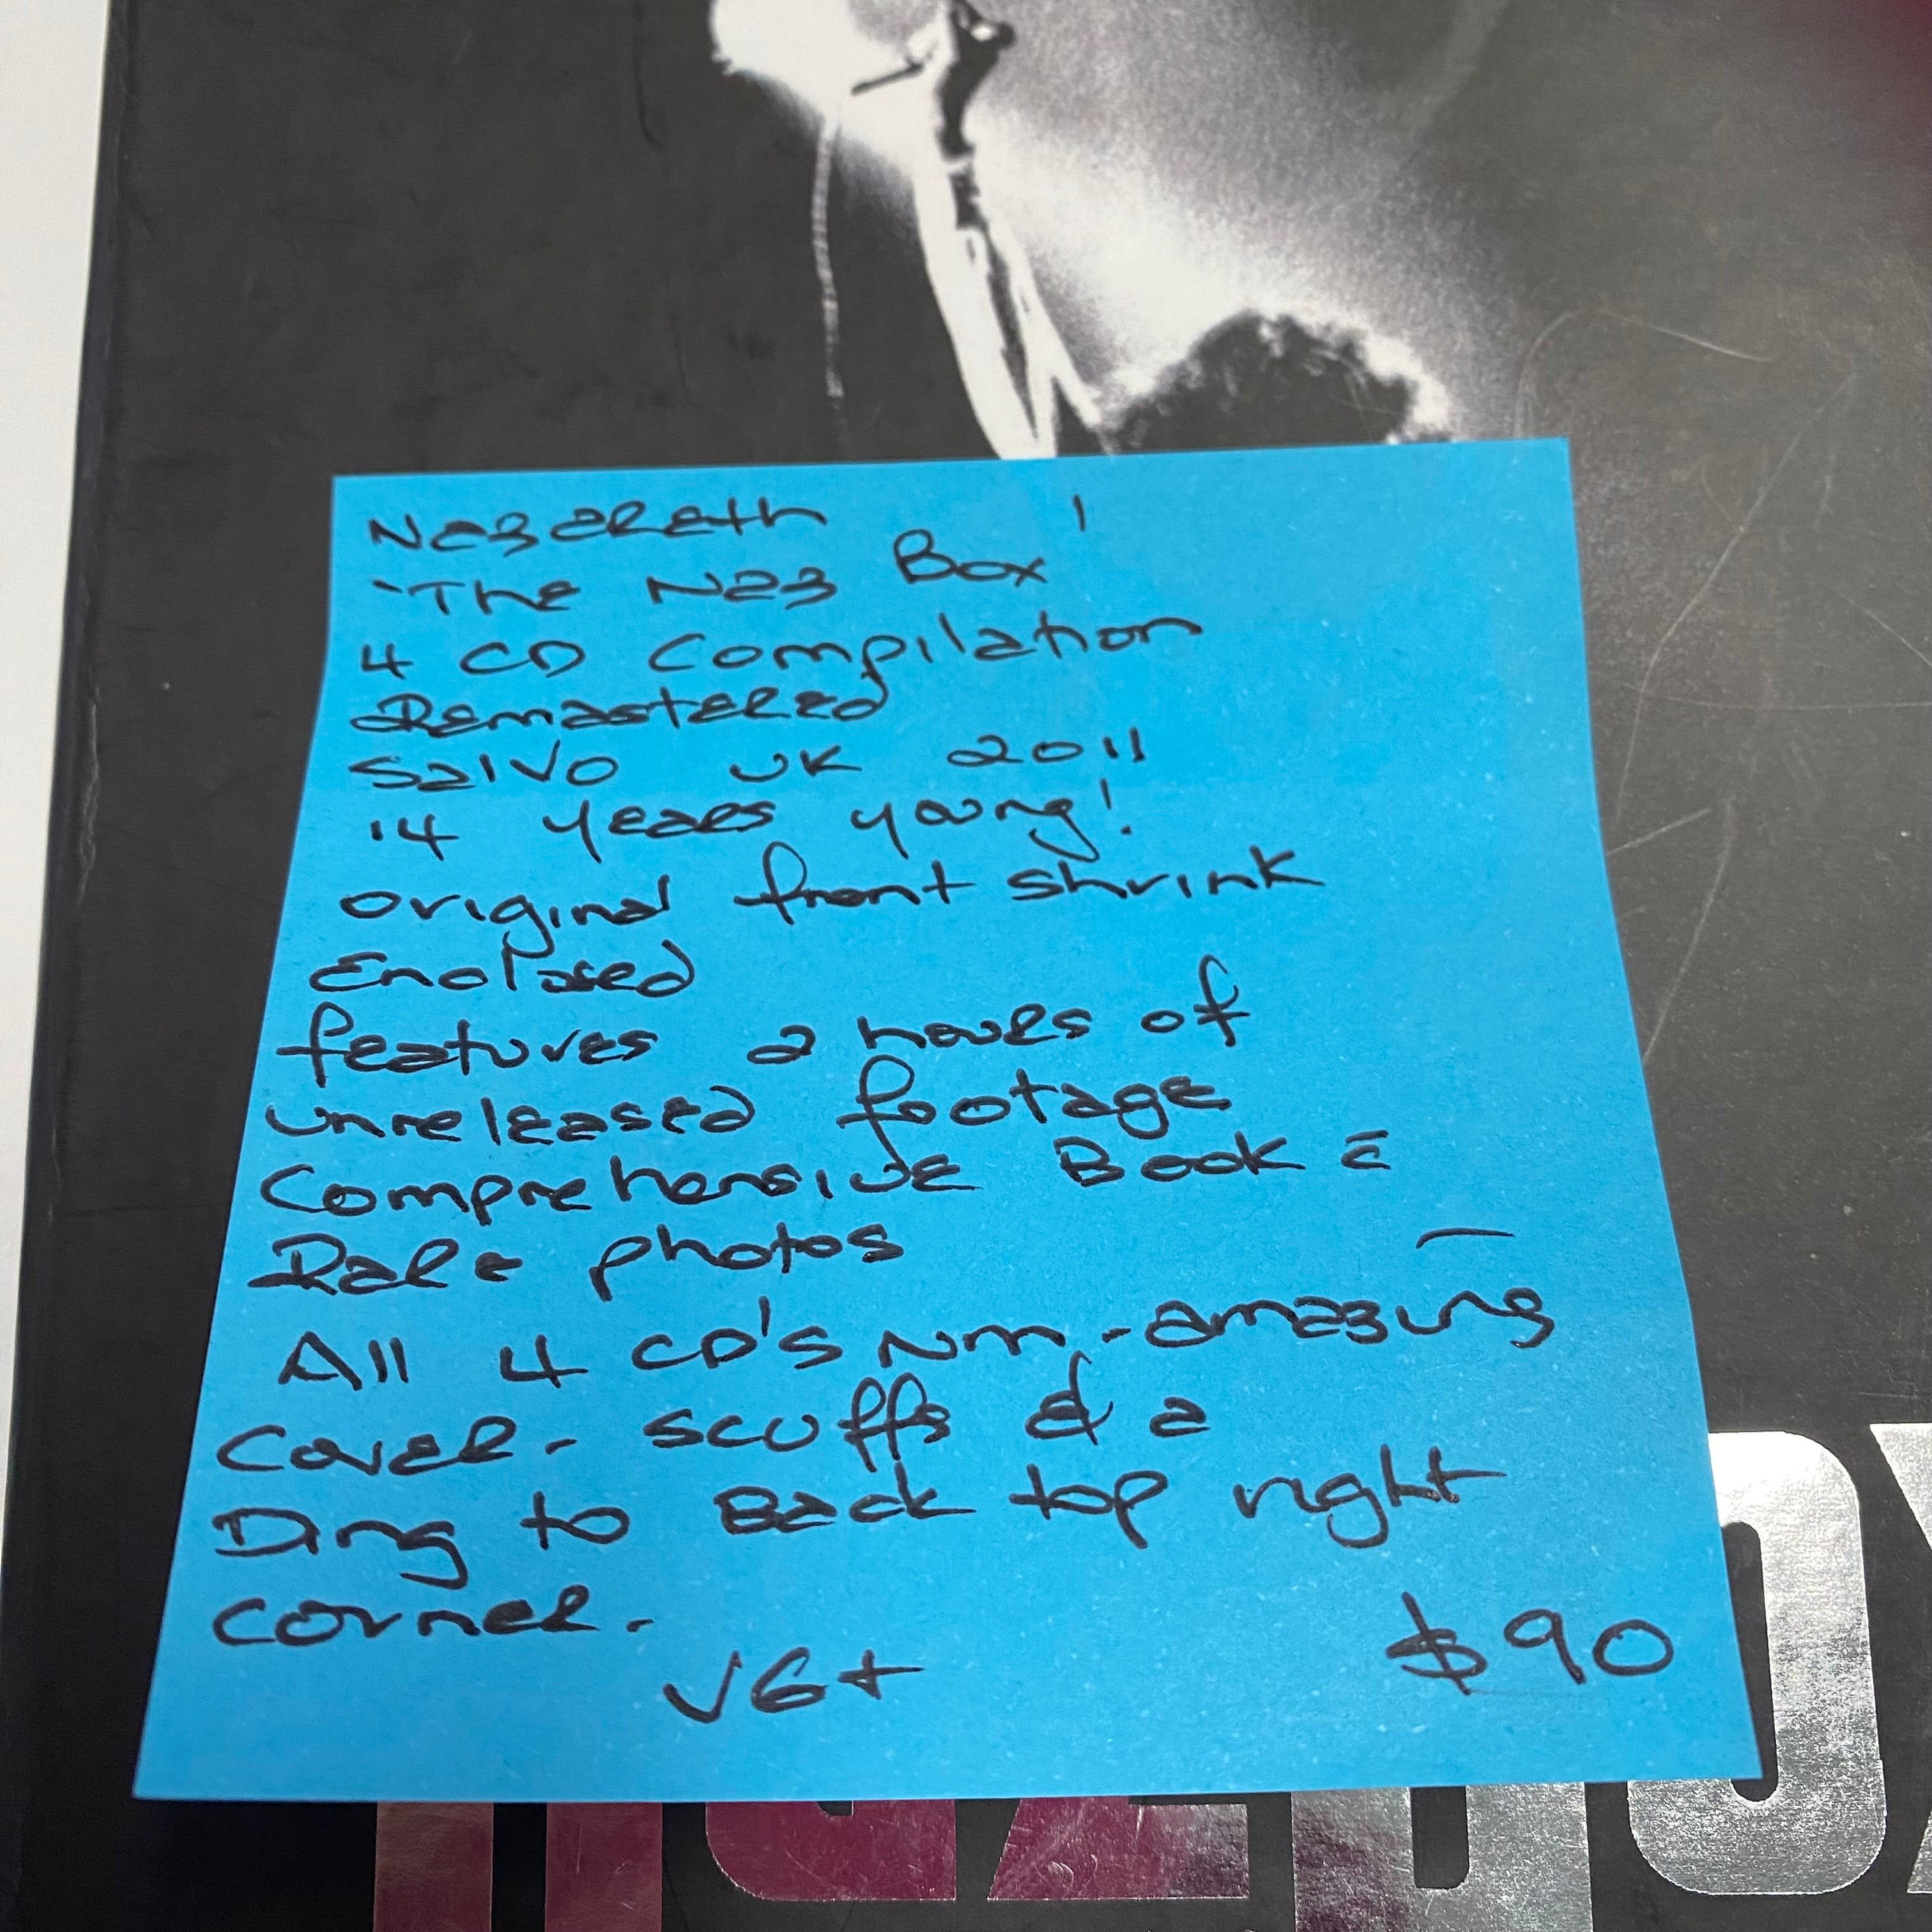 Nazareth
'The Naz Box'
4 CD Compilation
Remastered
Salvo UK 2011
14 years young!
original front shrink
Enclosed
features 2 hours of
unreleased footage
Comprehensive Book c̄
Rare photos
All 4 CD's NM - amazing
Cover - scuffs & a
Ding to Back top right
corner -
VG+ $90
NAZBOX